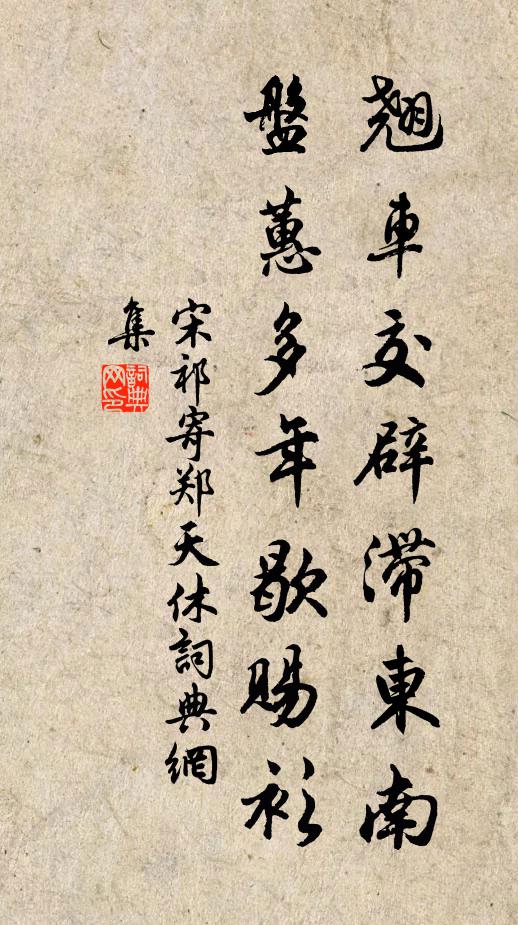 翹車交辟滯東南
盤蕙多年歇賜衫
宋祁寄郑天休詞典網
集
詞典
网印